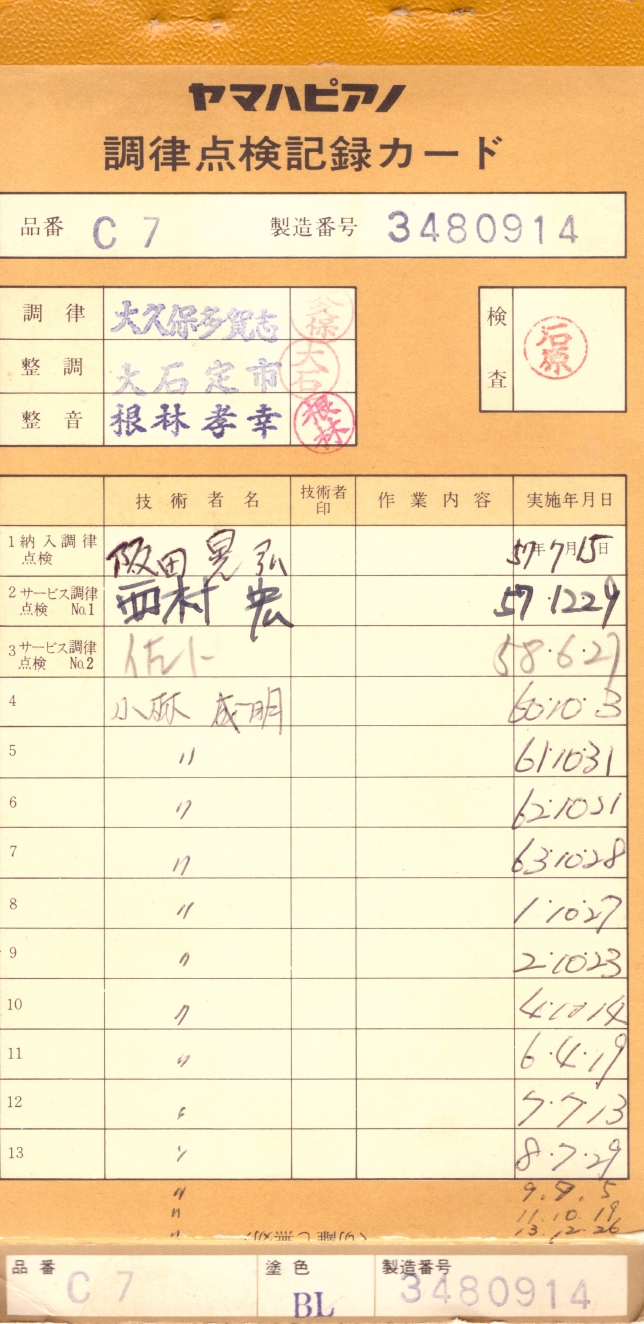 ヤマハピアノ
調律点検記録カード
品番 C7 製造番号 3480914
調律 大久保多賀志
整調 大石定市 大石
整音 根林孝幸 根林
検査 石原
技術者名 技術者印 作業内容 実施年月日
1 納入調律点検 阪田晃弘 57年7月15日
2 サービス調律点検 No.1 西村宏 57・12・29
3 サービス調律点検 No.2 58・6・27
4 小林成明 60・10・3
5 〃 61・10・31
6 〃 62・10・21
7 〃 63・10・28
8 〃 1・10・27
9 〃 2・10・23
10 〃 4・10・14
11 〃 6・4・19
12 〃 7・7・13
13 〃 8・7・29
〃 9.9.5
〃 11.10.19
〃 13.12.26
品番 C7 塗色 BL 製造番号 3480914